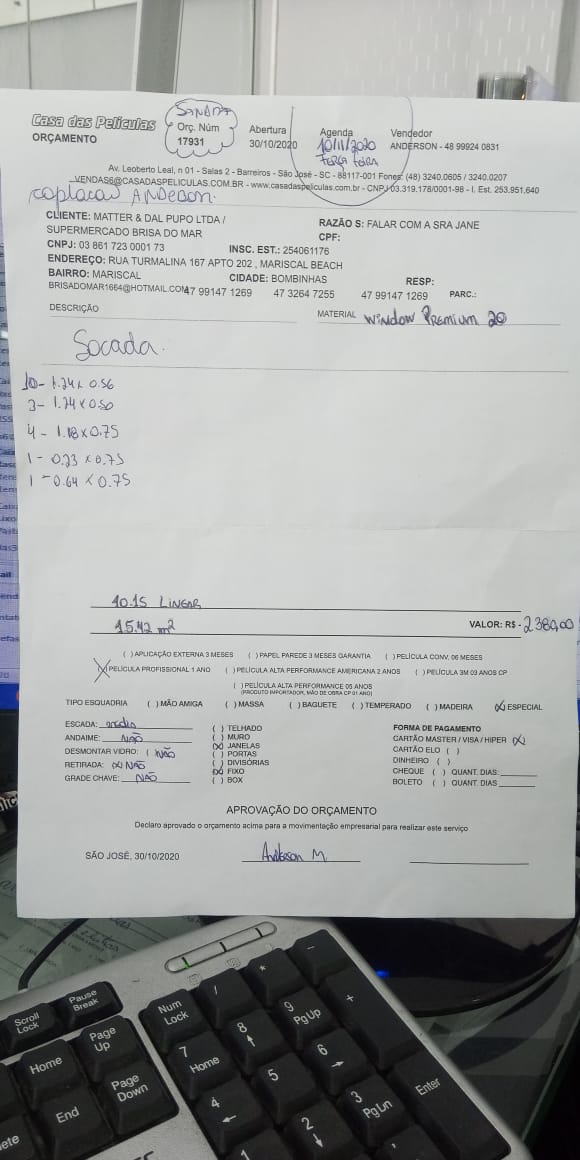 Casa das Películas
ORÇAMENTO
SANDRA
Orç. Núm
17931
Abertura
30/10/2020
Agenda
10/11/2020
TERÇA FEIRA
Vendedor
ANDERSON - 48 99924 0831
Av. Leoberto Leal, n 01 - Salas 2 - Barreiros - São José - SC - 88117-001 Fones: (48) 3240.0605 / 3240.0207
VENDAS6@CASADASPELICULAS.COM.BR - www.casadaspeliculas.com.br - CNPJ 03.319.178/0001-98 - I. Est. 253.951.640
CLIENTE: MATTER & DAL PUPO LTDA /
SUPERMERCADO BRISA DO MAR
RAZÃO S: FALAR COM A SRA JANE
CPF:
CNPJ: 03 861 723 0001 73
INSC. EST.: 254061176
ENDEREÇO: RUA TURMALINA 167 APTO 202 , MARISCAL BEACH
BAIRRO: MARISCAL
CIDADE: BOMBINHAS
RESP:
BRISADOMAR1664@HOTMAIL.COM
47 99147 1269
47 3264 7255
47 99147 1269
PARC.:
DESCRIÇÃO
MATERIAL WINDOW PREMIUM 20
Socada.
10 - 1.24 x 0.56
3 - 1.24 x 0.50
4 - 1.18 x 0.75
1 - 0.23 x 0.75
1 - 0.64 x 0.75
10.15 LINEAR
15.42 m²
VALOR: R$ - 2380,00
( ) APLICAÇÃO EXTERNA 3 MESES ( ) PAPEL PAREDE 3 MESES GARANTIA ( ) PELÍCULA CONV. 06 MESES
(X) PELÍCULA PROFISSIONAL 1 ANO ( ) PELÍCULA ALTA PERFORMANCE AMERICANA 2 ANOS ( ) PELÍCULA 3M 03 ANOS CP
( ) PELÍCULA ALTA PERFORMANCE 05 ANOS
(PRODUTO IMPORTADOR, MÃO DE OBRA CP 01 ANO)
TIPO ESQUADRIA ( ) MÃO AMIGA ( ) MASSA ( ) BAGUETE ( ) TEMPERADO ( ) MADEIRA (X) ESPECIAL
ESCADA:
ANDAIME: NÃO
DESMONTAR VIDRO: ( NÃO
RETIRADA: (X) NÃO
GRADE CHAVE: NÃO
( ) TELHADO
( ) MURO
(X) JANELAS
( ) PORTAS
( ) DIVISÓRIAS
(X) FIXO
( ) BOX
FORMA DE PAGAMENTO
CARTÃO MASTER / VISA / HIPER (X)
CARTÃO ELO ( )
DINHEIRO ( )
CHEQUE ( ) QUANT. DIAS:
BOLETO ( ) QUANT. DIAS
APROVAÇÃO DO ORÇAMENTO
Declaro aprovado o orçamento acima para a movimentação empresarial para realizar este serviço
SÃO JOSÉ, 30/10/2020
Anderson M.
Scroll Lock
Pause Break
Home
Page Up
End
Page Down
Num Lock
/
*
-
7 Home
8
9 PgUp
+
4
5
6
2
3 PgDn
Enter